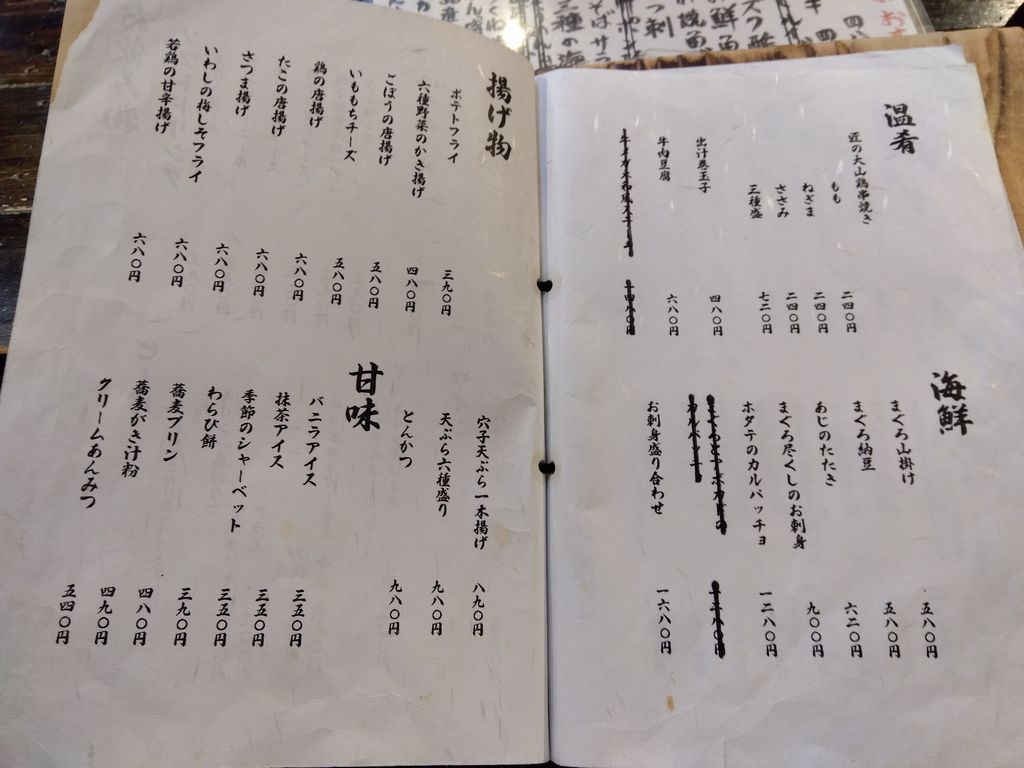 温肴
匠の大山鶏串焼き
もも 二四〇円
ねぎま 二四〇円
ささみ 二四〇円
三種盛 七二〇円
出汁巻玉子 四八〇円
牛肉豆腐 六八〇円
海鮮
まぐろ山掛け 五八〇円
まぐろ納豆 五八〇円
あじのたたき 六二〇円
まぐろ尽くしのお刺身 九〇〇円
ホタテのカルパッチョ 一二八〇円
お刺身盛り合わせ 一六八〇円
揚げ物
ポテトフライ 三九〇円
六種野菜のかき揚げ 四八〇円
ごぼうの唐揚げ 五八〇円
いももちチーズ 五八〇円
鶏の唐揚げ 六八〇円
たこの唐揚げ 六八〇円
さつま揚げ 六八〇円
いわしの梅しそフライ 六八〇円
若鶏の甘辛揚げ 六八〇円
穴子天ぷら一本揚げ 八九〇円
天ぷら六種盛り 九八〇円
とんかつ 九八〇円
甘味
バニラアイス 三五〇円
抹茶アイス 三五〇円
季節のシャーベット 三五〇円
わらび餅 三九〇円
蕎麦プリン 四八〇円
蕎麦がき汁粉 四九〇円
クリームあんみつ 五四〇円